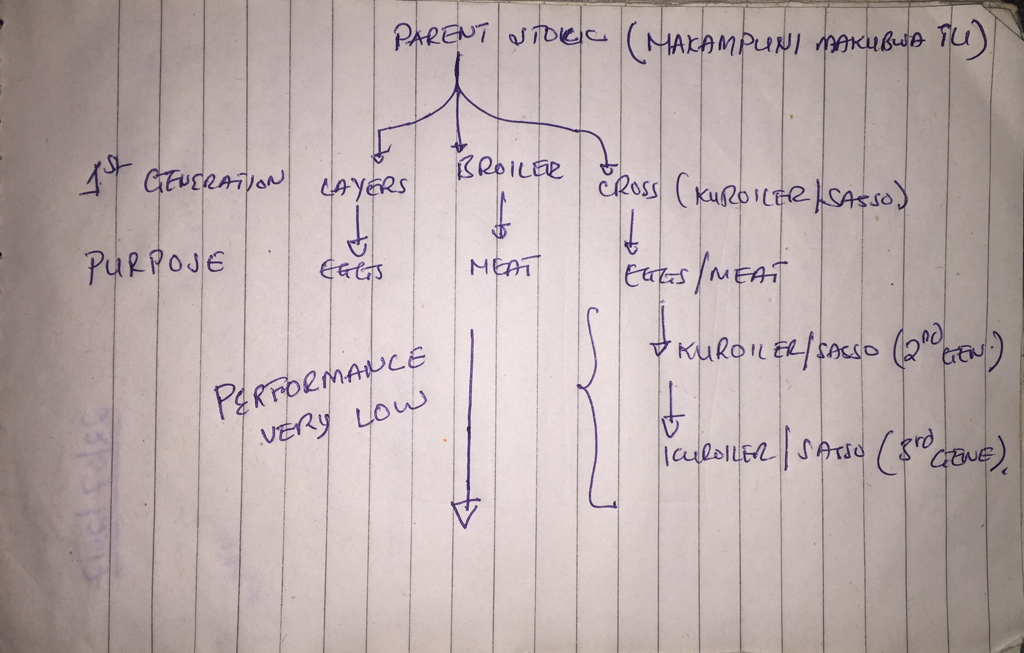 PARENT STOCK (MAKAMPUNI MAKUBWA TU)
1st GENERATION LAYERS BROILER CROSS (KUROILER/SASSO)
PURPOSE EGGS MEAT EGGS/MEAT
KUROILER/SASSO (2nd GEN.)
PERFORMANCE
VERY LOW
KUROILER/SASSO (3rd GENE).